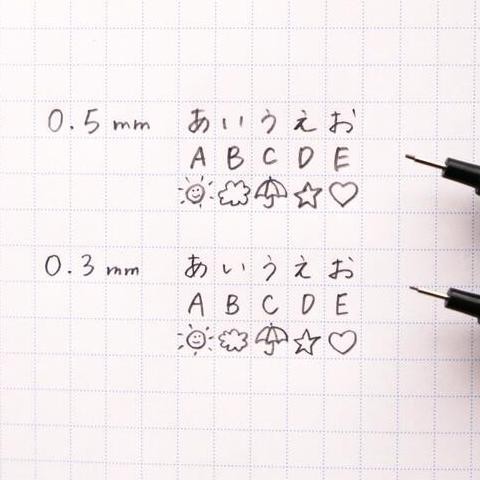 0.5 mm あいうえお
A B C D E
0.3 mm あいうえお
A B C D E